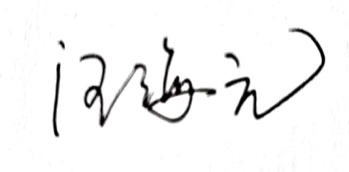 汪海元